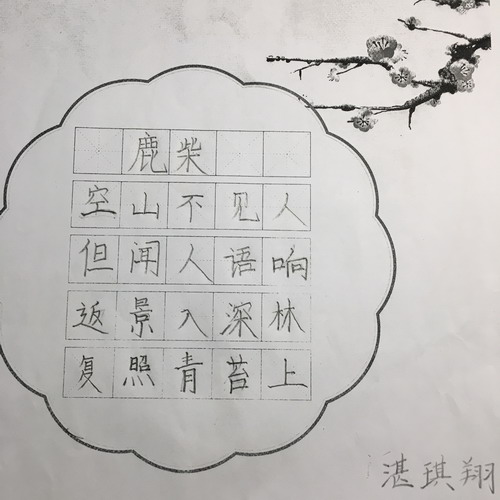 鹿柴
空山不见人
但闻人语响
返景入深林
复照青苔上
湛琪翔